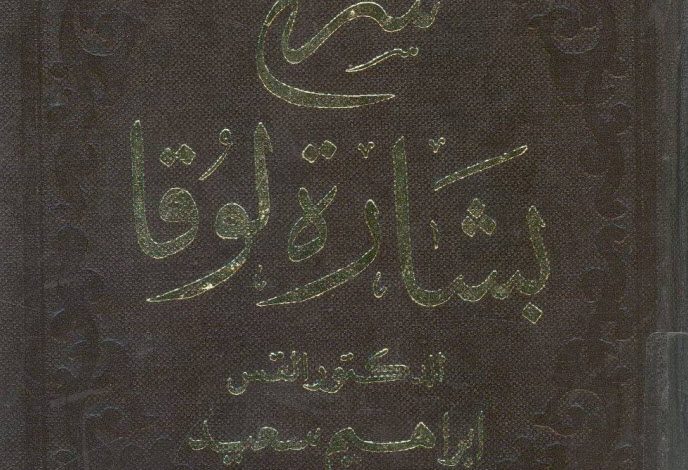 شرح
بشارة لوقا
الدكتور القس
ابراهيم سعيد